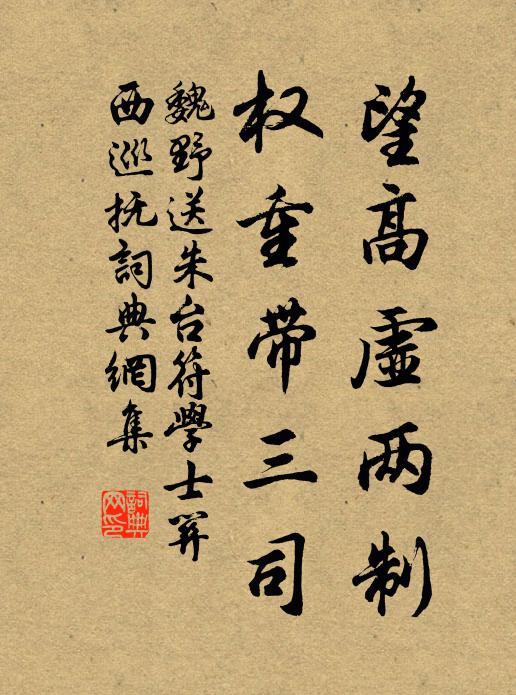 望高虚两制
权重带三司
魏野送朱台符学士牙
西巡抚詞典網集
詞典网印